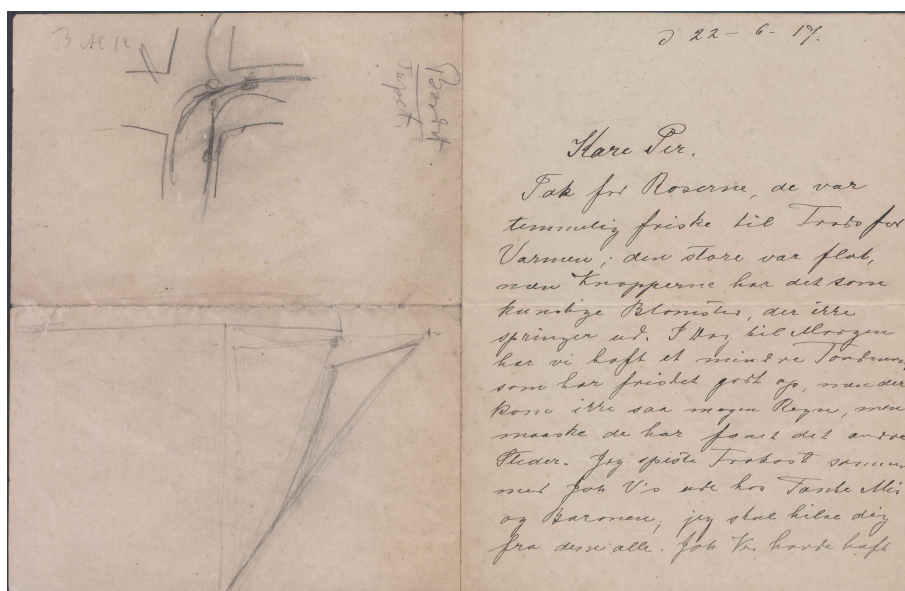 Bord
Tapet.
22-6-17.
Kære Per.
Tak for Roserne, de var
temmelig friske til Trods for
Varmen; den store var flot,
men Knopperne har det som
kunstige Blomster, der ikke
springer ud. I Dag til Morgen
har vi haft et mindre Tordenvej
som har frisket godt op, men der
kom ikke saa megen Regn, men
maaske de har faaet det andre
Steder. Jeg spiste Frokost sammen
med Joh V's ude hos Tante Mis
og Baronen, jeg skal hilse dig
fra dem alle. Joh Vs havde haft